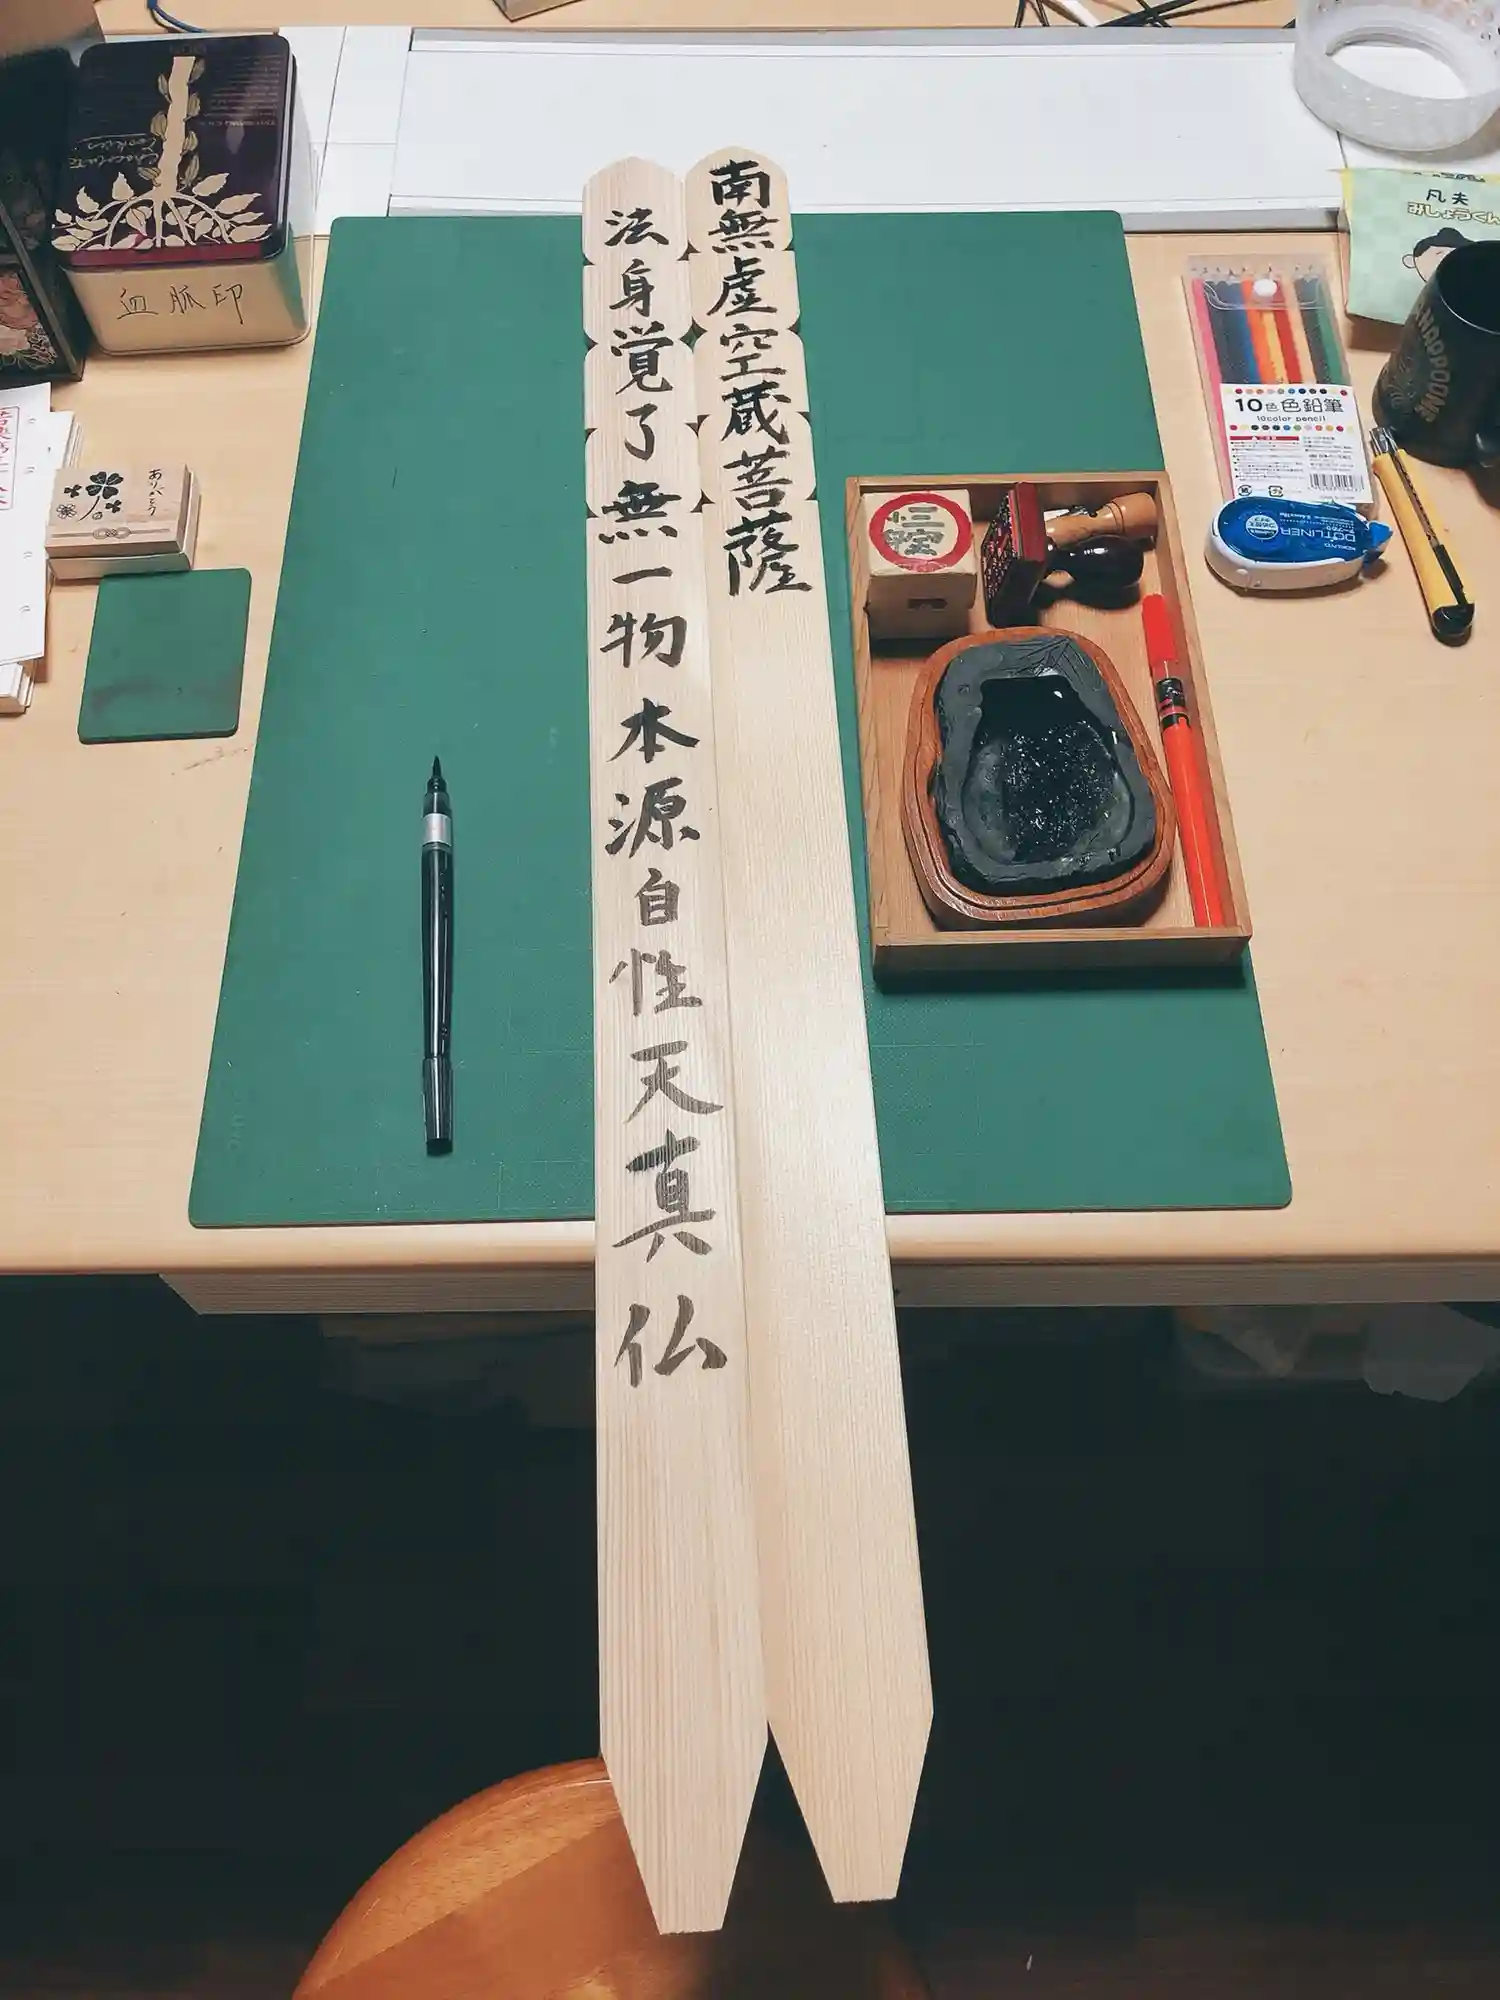 南無虚空蔵菩薩
法身覚了無一物本源自性天真仏
血脈印
Chocolate
Cookies
ありがとう
凡夫
みしょうくん
10色 色鉛筆
10color pencil
DOTLINER
KOKUYO